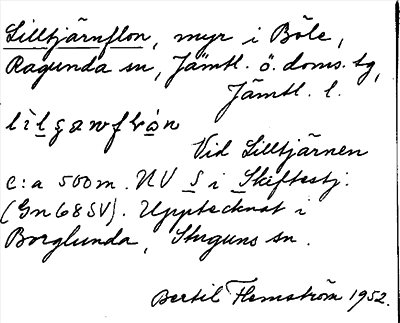 Lilltjärnflon, myr i Böle,
Ragunda sn, Jämtl. ö. doms. tg,
Jämtl. l.
Vid Lilltjärnen
c:a 500 m. NV S i Skiftestj.
(Gn 68 SV). Upptecknat i
Borglunda, Stuguns sn.
Bertil Flemström 1952.